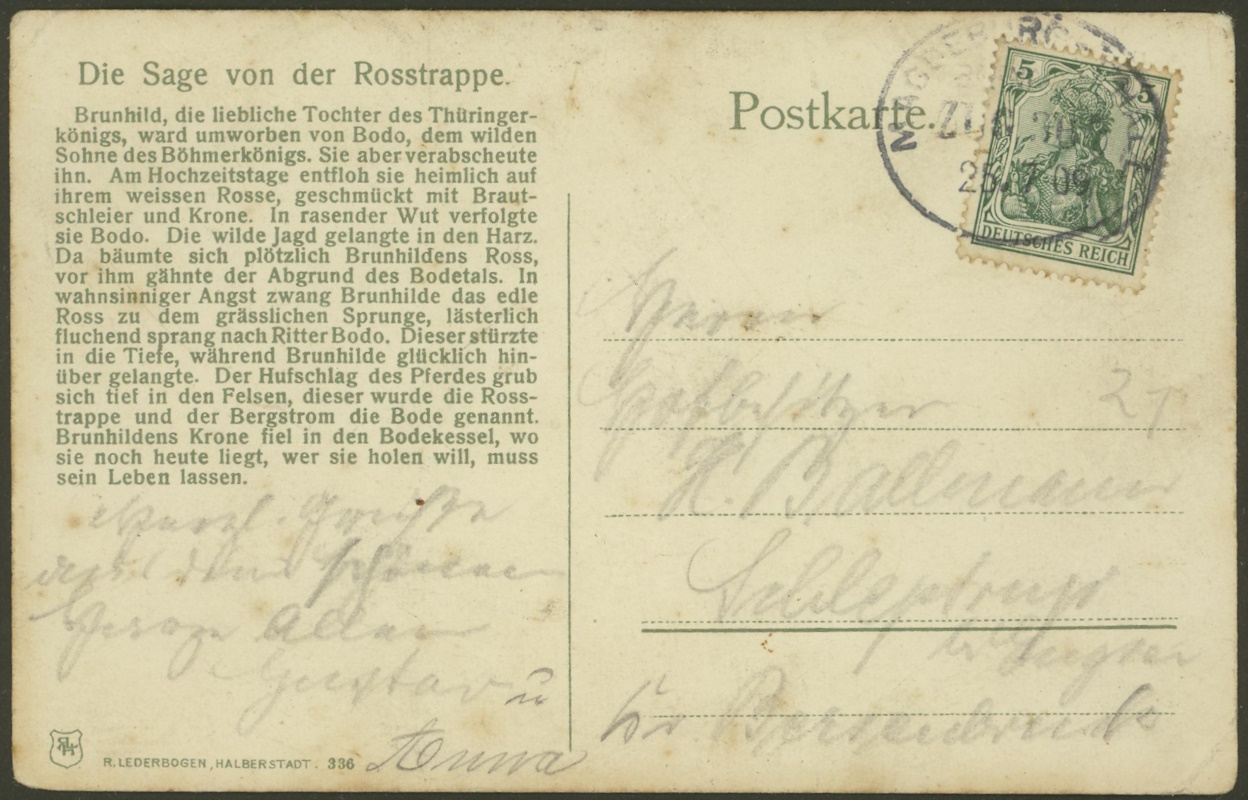 Die Sage von der Rosstrappe.
Brunhild, die liebliche Tochter des Thüringer-
königs, ward umworben von Bodo, dem wilden
Sohne des Böhmerkönigs. Sie aber verabscheute
ihn. Am Hochzeitstage entfloh sie heimlich auf
ihrem weissen Rosse, geschmückt mit Braut-
schleier und Krone. In rasender Wut verfolgte
sie Bodo. Die wilde Jagd gelangte in den Harz.
Da bäumte sich plötzlich Brunhildens Ross,
vor ihm gähnte der Abgrund des Bodetals. In
wahnsinniger Angst zwang Brunhilde das edle
Ross zu dem grässlichen Sprunge, lästerlich
fluchend sprang nach Ritter Bodo. Dieser stürzte
in die Tiefe, während Brunhilde glücklich hin-
über gelangte. Der Hufschlag des Pferdes grub
sich tief in den Felsen, dieser wurde die Ross-
trappe und der Bergstrom die Bode genannt.
Brunhildens Krone fiel in den Bodekessel, wo
sie noch heute liegt, wer sie holen will, muss
sein Leben lassen.
Herzl. Grüße
aus dem schönen
Harze Allen
Gustav u
Anna
R. LEDERBOGEN, HALBERSTADT. 336
Postkarte.
MAGDEBURG
ZUG
25.7 09
5 5
DEUTSCHES REICH
Herrn
Hofbesitzer
H. Ballmann
bei Engter
Kr Bersenbrück